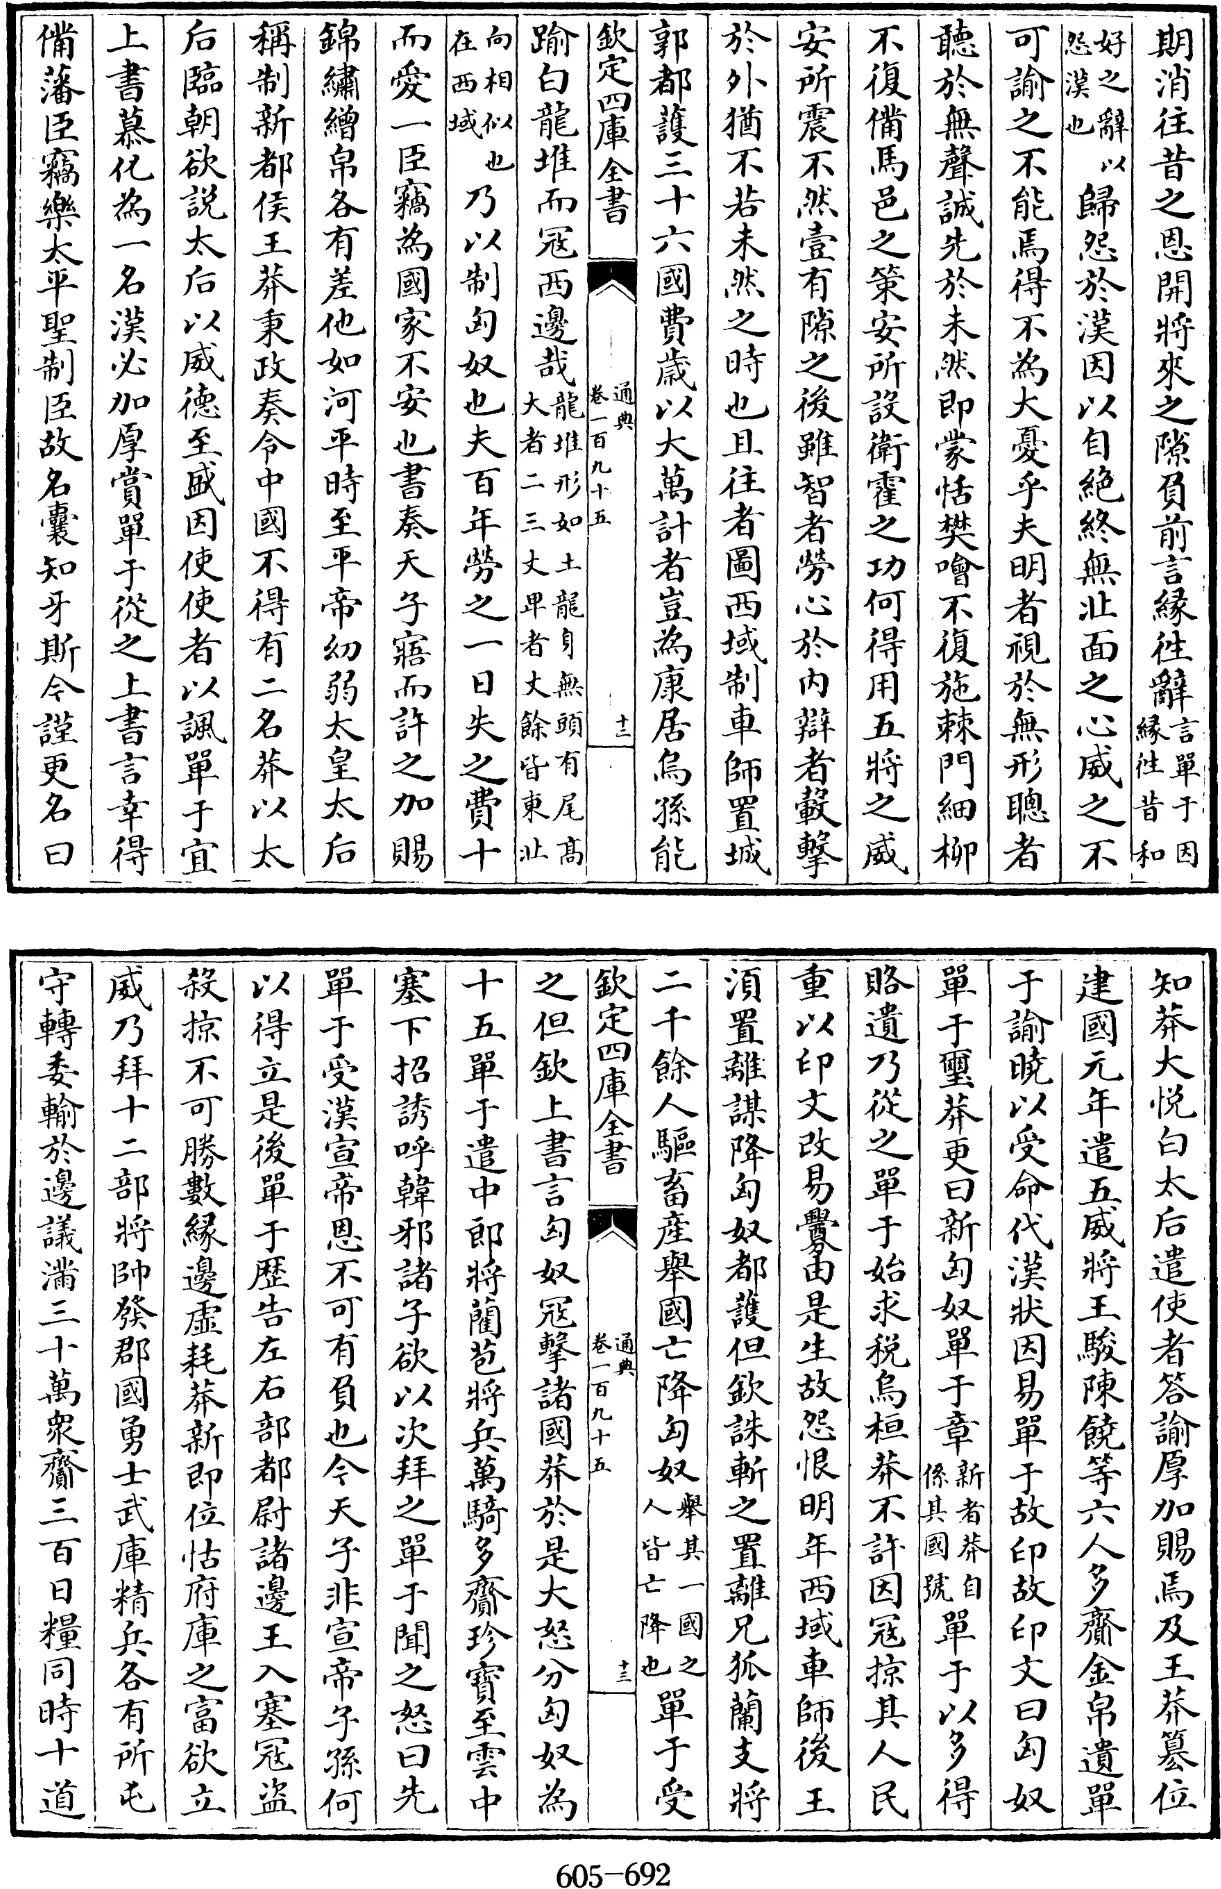 期消往昔之恩開將來之隙負前言緣徃辭言單于因緣徃昔和
好之辭以怨漢也歸怨於漢因以自絶終無北面之心威之不
可諭之不能焉得不為大憂乎夫明者視於無形聰者
聽於無聲誠先於未然即蒙恬樊噲不復施棘門細柳
不復備馬邑之策安所設衛霍之功何得用五將之威
安所震不然壹有隙之後雖智者勞心於内辯者轂擊
於外猶不若未然之時也且往者圖西域制車師置城
郭都護三十六國費歲以大萬計者豈為康居烏孫能
欽定四庫全書
通典
卷一百九十五
十三
踰白龍堆而冦西邊哉龍堆形如土龍身無頭有尾髙大者二三丈卑者丈餘皆東北
向相似也在西域乃以制匈奴也夫百年勞之一日失之費十
而愛一臣竊為國家不安也書奏天子寤而許之加賜
錦繡繒帛各有差他如河平時至平帝幼弱太皇太后
稱制新都侯王莽秉政奏令中國不得有二名莽以太
后臨朝欲説太后以威德至盛因使使者以諷單于宜
上書慕化為一名漢必加厚賞單于從之上書言幸得
備藩臣竊樂太平聖制臣故名囊知牙斯今謹更名曰
知莽大悦白太后遣使者答諭厚加賜焉及王莽簒位
建國元年遣五威將王駿陳饒等六人多齎金帛遺單
于諭曉以受命代漢狀因易單于故印故印文曰匈奴
單于璽莽更曰新匈奴單于章新者莽自係其國號單于以多得
賂遺乃從之單于始求税烏桓莽不許因冦掠其人民
重以印文改易釁由是生故怨恨明年西域車師後王
湏置離謀降匈奴都護但欽誅斬之置離兄狐蘭支將
二千餘人驅畜産舉國亡降匈奴舉其一國之人皆亡降也單于受
欽定四庫全書
通典
卷一百九十五
十三
之但欽上書言匈奴冦擊諸國莽於是大怒分匈奴為
十五單于遣中郎將藺苞將兵萬騎多齎珍寶至雲中
塞下招誘呼韓邪諸子欲以次拜之單于聞之怒曰先
單于受漢宣帝恩不可有負也今天子非宣帝子孫何
以得立是後單于歴告左右部都尉諸邊王入塞冦盜
殺掠不可勝數緣邊虛耗莽新即位怙府庫之富欲立
威乃拜十二部將帥發郡國勇士武庫精兵各有所屯
守轉委輸於邊議滿三十萬衆齎三百日糧同時十道
605-692